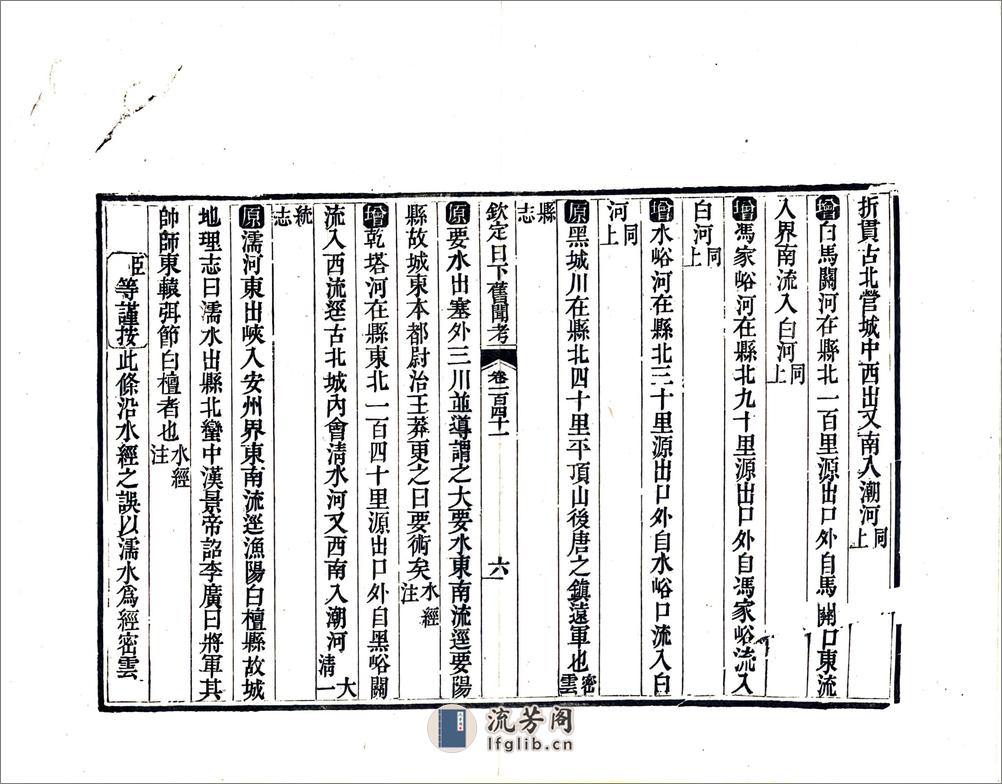 折貫古北營城中西出又南入潮河同上
增白馬關河在縣北一百里源出口外自馬關口東流
入界南流入白河同上
增馮家峪河在縣北九十里源出口外自馮家峪流入
白河同上
增水峪河在縣北三十里源出口外自水峪口流入白
河同上
原黑城川在縣北四十里平頂山後唐之鎮遠軍也密雲
縣志
欽定日下舊聞考 卷一百四十一 六
原要水出塞外三川並導謂之大要水東南流逕要陽
縣故城東本都尉治王莽更之曰要術矣水經注
增乾塔河在縣東北一百四十里源出口外自黑峪關
流入西流逕古北城內會清水河又西南入潮河大清一
統志
原濡河東出峽入安州界東南流逕漁陽白檀縣故城
地理志曰濡水出縣北蠻中漢景帝詔李廣曰將軍其
帥師東轅弭節白檀者也水經注
臣等謹按此條沿水經之誤以濡水爲經密雲
流芳阁
lfglib.cn